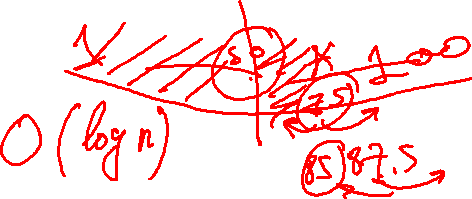 1 50 100
75
O(log n)
85 87.5